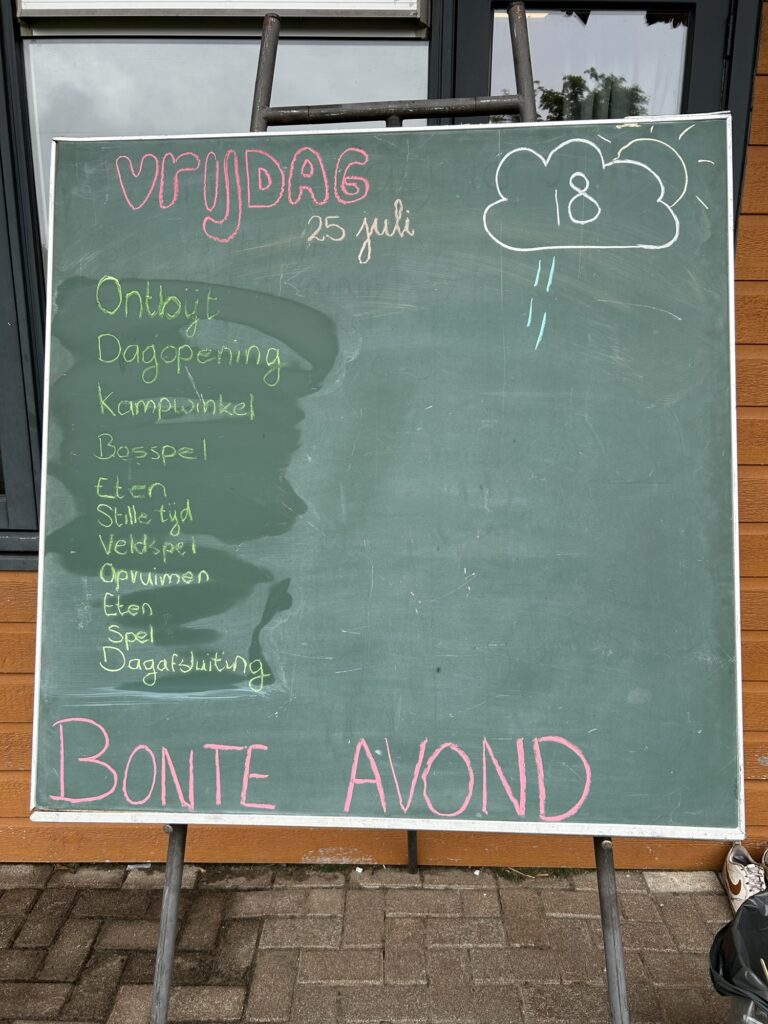 VRIJDAG
25 juli
18
Ontbijt
Dagopening
Kampwinkel
Bosspel
Eten
Stille tijd
Veldspel
Opruimen
Eten
Spel
Dagafsluiting
BONTE AVOND